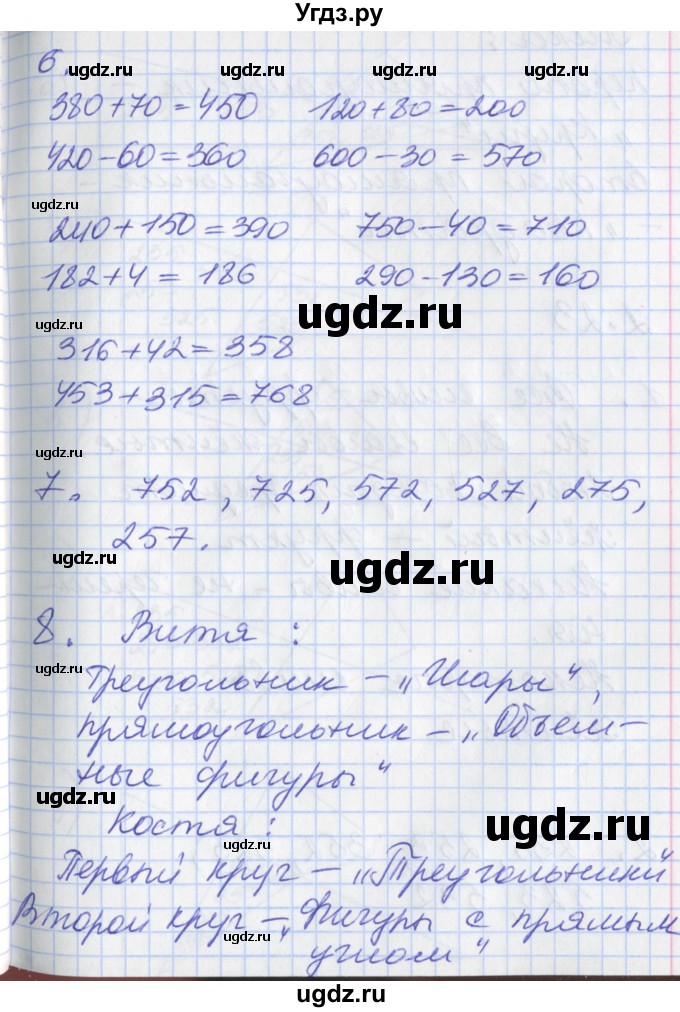 Угдз.ру
ugdz.ru ugdz.ru
6.
380+70=450 120+80=200
ugdz.ru ugdz.ru
420-60=360 600-30=570
ugdz.ru
240+150=390 750-40=710
182+4=186 290-130=160
ugdz.ru
ugdz.ru
316+42=358
453+315=768
ugdz.ru
7. 752, 725, 572, 527, 275,
257.
ugdz.ru
ugdz.ru
8. Витя:
ugdz.ru
Треугольник – „Шары“,
прямоугольник – „Объем-
ные фигуры“
ugdz.ru
Костя:
ugdz.ru
Первый круг – „Треугольники
Второй круг – „Фигуры с прямым
ugdz.ru ugdz.ru
углом“
ugdz.ru